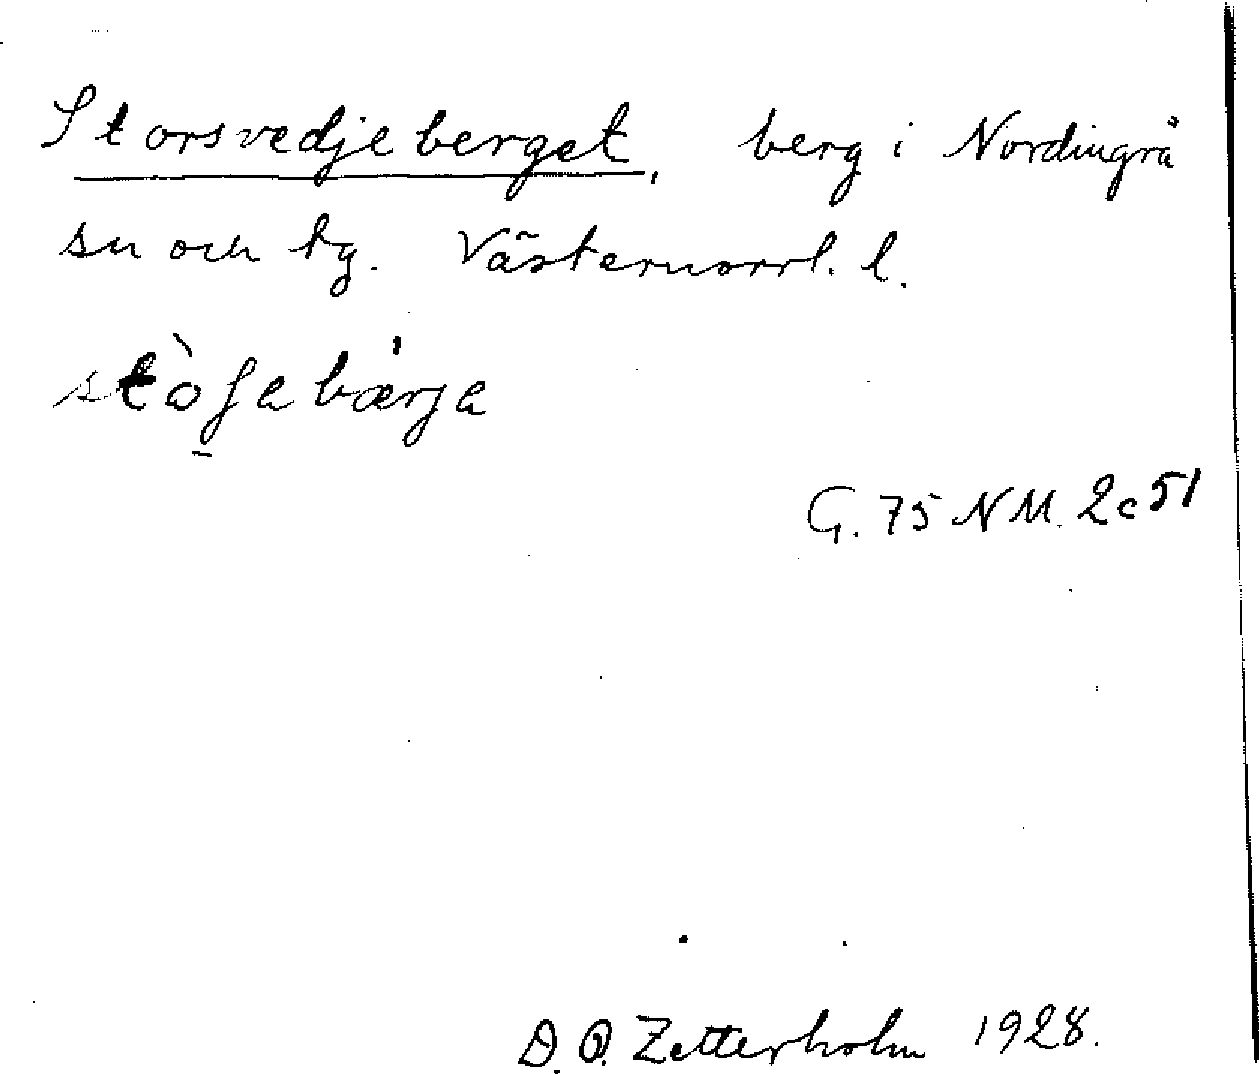 Storsvedjeberget, berg i Nordingrå
sn och tg. Västernorrl. l.
G. 75 NM. 2c 51
D. O. Zetterholm 1928.